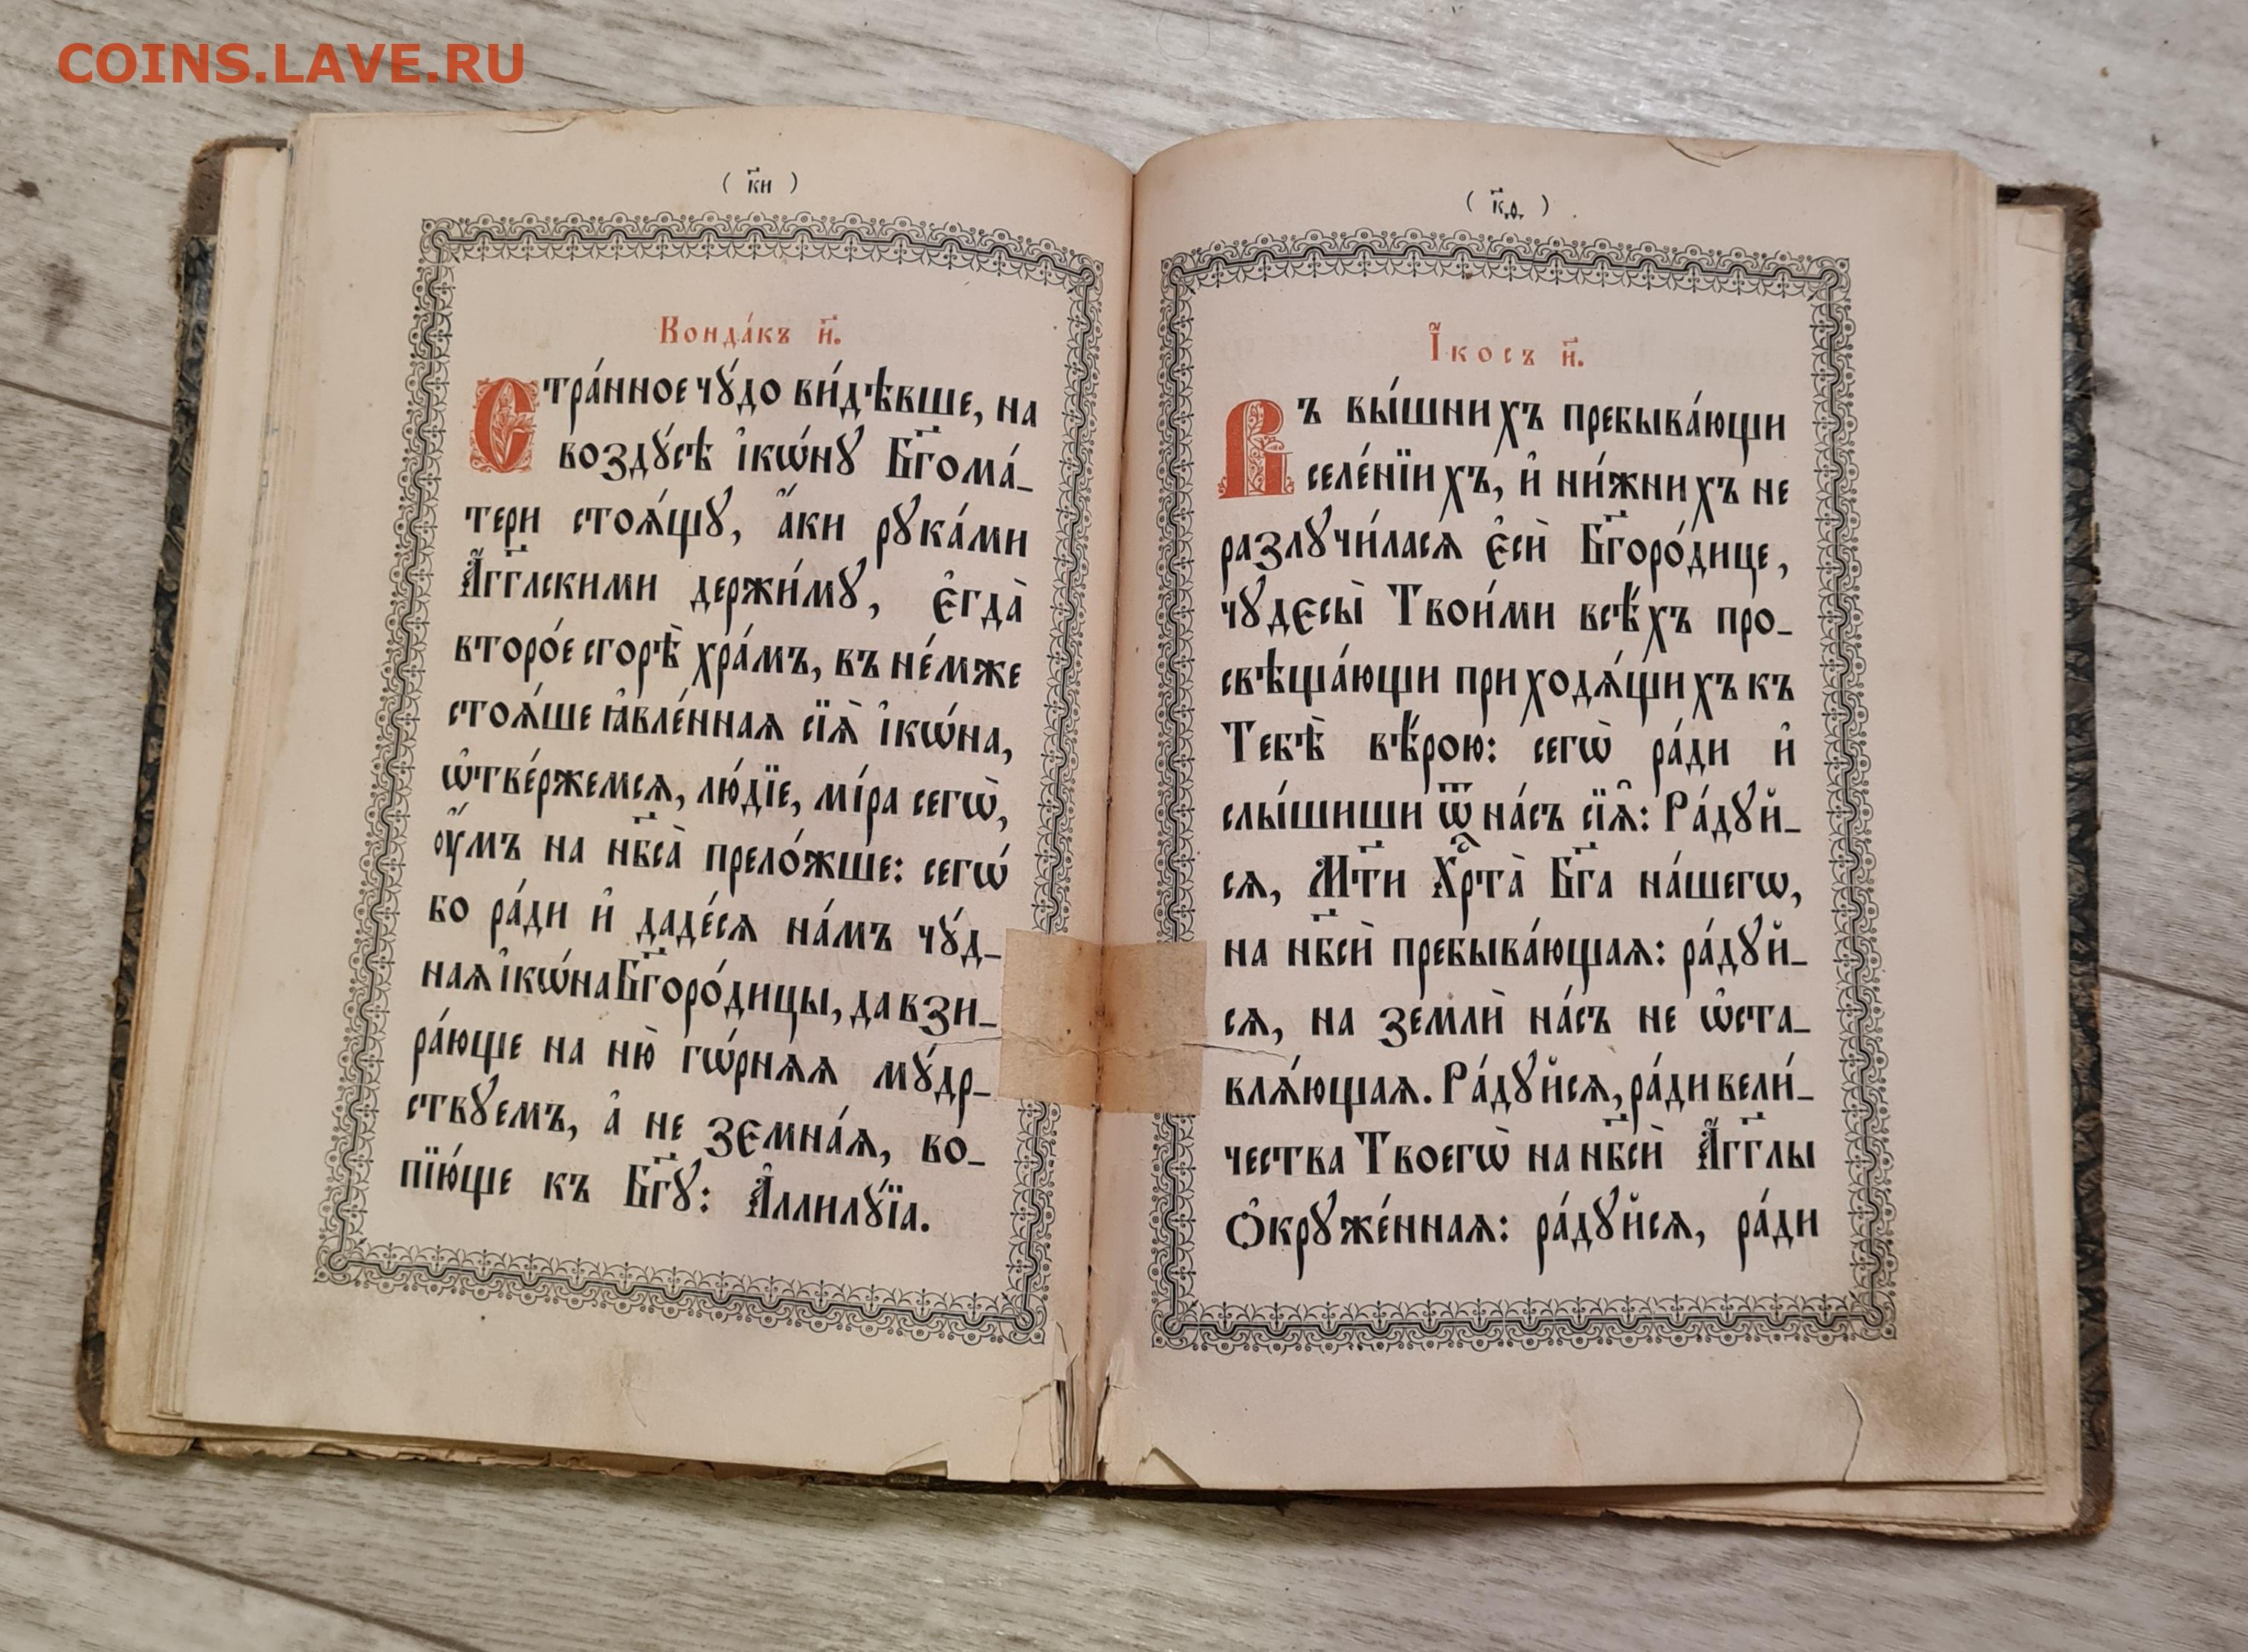 COINS.LAVE.RU
( к҃и )
Конда́къ и҃.
Стра́нное чꙋ́до ви́дѣвше, на
воздꙋ́сѣ і҆кѡ́нꙋ Бг҃ома́-
тери стоѧ́щꙋ, а҆́ки рꙋка́ми
А҆́гг҃лскими держи́мꙋ, є҆гда̀
второ́е сгорѣ̀ хра́мъ, въ не́мже
стоѧ́ше ꙗ҆вле́ннаѧ сїѧ̀ і҆кѡ́на,
ѿве́ржемсѧ, лю́дїе, мі́ра сегѡ̀,
ᲂу҆́мъ на нб҃са̀ прело́жше: сегѡ́
бо ра́ди и҆ даде́сѧ на́мъ чꙋ́д-
наѧ і҆кѡ́на Бг҃оро́дицы, да взи-
ра́юще на ню̀ гѡ́рнѧѧ мꙋ́др-
ствꙋемъ, а҆ не земна́ѧ, во-
пїю́ще къ Бг҃ꙋ: А҆ллилꙋ́їа.
( к҃ѳ )
І҆́косъ и҃.
Въ вы́шнихъ пребыва́ющи
селе́нїихъ, и҆ ни́жнихъ не
разлꙋчи́ласѧ є҆сѝ Бг҃оро́дице,
чꙋдесы̀ Твои́ми всѣ́хъ про-
свѣща́ющи приходѧ́щихъ къ
Тебѣ̀ вѣ́рою: сегѡ̀ ра́ди и҆
слы́шиши ѿ на́съ сїѧ̑: Ра́дꙋй-
сѧ, Мт҃и Хрⷭ҇та̀ Бг҃а на́шегѡ,
на нб҃сѝ пребыва́ющаѧ: ра́дꙋй-
сѧ, на землѝ на́съ не ѡ҆ста-
влѧ́ющаѧ. Ра́дꙋйсѧ, ра́ди вели́-
чества Твоегѡ̀ на нб҃сѝ А҆́гг҃лы
Ѻ҆крꙋже́ннаѧ: ра́дꙋйсѧ, ра́ди